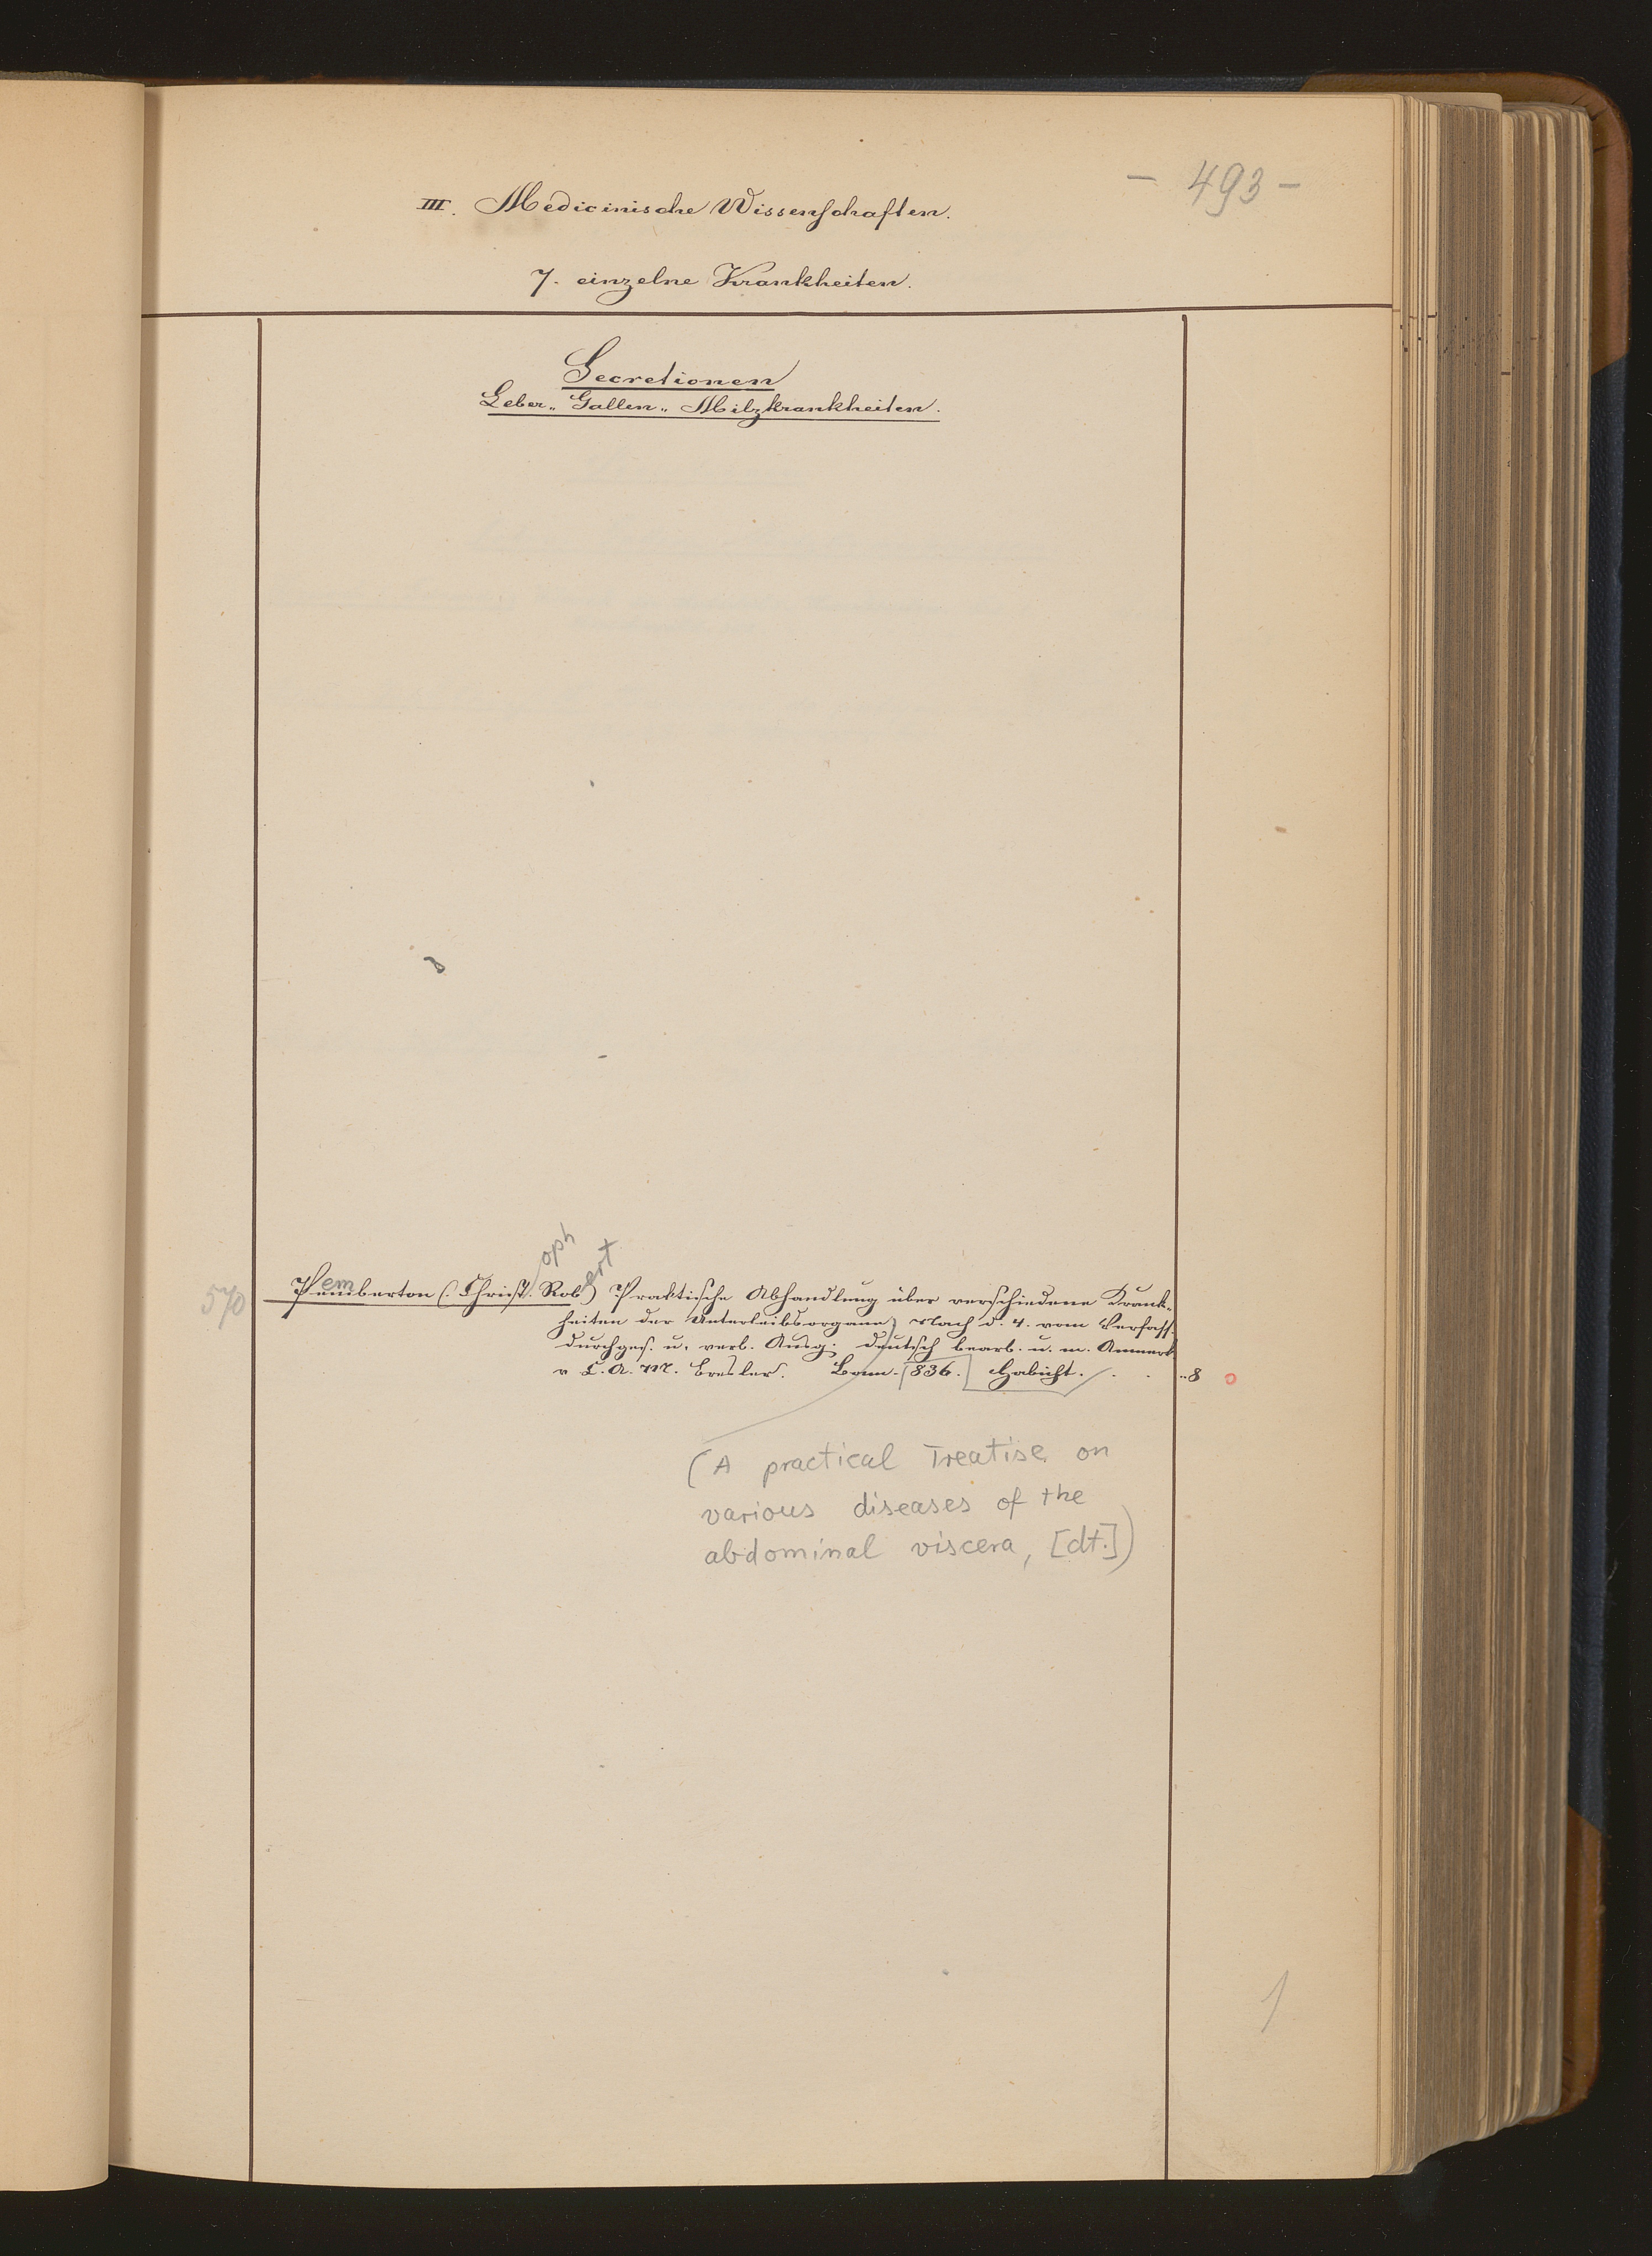 - 493 -
III. Medicinische Wissenschaften.
7. einzelne Krankheiten.
Secretionen
Leber„ Gallen„ Milzkrankheiten.
oph
ert
570 Pemberton (Christ. Rob) Praktische Abhandlung über verschiedene Krank-
heiten der Unterleibsorgane) Nach d. 4. vom Verfass.
durchges. u. verb. Ausg. deutsch bearb. u. m. Anmerk
v C. A. M. Bresler. Bonn. 836. Habicht. . . „8
(A practical Treatise on
various diseases of the
abdominal viscera, [dt.])
1